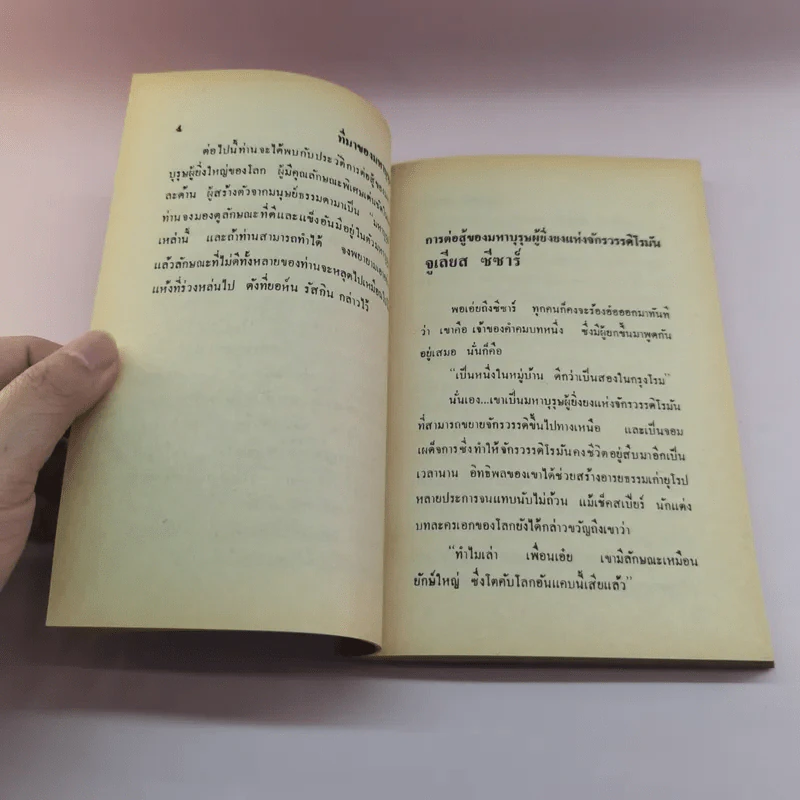 4
ที่มาของมหา
ต่อไปนี้ท่านจะได้พบกับประวัติการต่อสู้
บุรุษผู้ยิ่งใหญ่ของโลก ผู้มีคุณลักษณะพิเศษ
ละด้าน ผู้สร้างตัวจากมนุษย์ธรรมดามาเป็น
ท่านจงมองดูลักษณะที่ดีและแข็งอันมีอยู่ในตัว
เหล่านี้ และถ้าท่านสามารถทำได้ จงพยายาม
แล้วลักษณะที่ไม่ดีทั้งหลายของท่านจะหลุดไปเหมือน
แห้งที่ร่วงหล่นไป ดังที่ยอห์น รัสกิน กล่าวไว้
การต่อสู้ของมหาบุรุษผู้ยิ่งยงแห่งจักรวรรดิโรมัน
จูเลียส ซีซาร์
พอเอ่ยถึงซีซาร์ ทุกคนก็คงจะร้องอ๋อออกมาทันที
ว่า เขาคือ เจ้าของคำคมบทหนึ่ง ซึ่งมีผู้ยกขึ้นมาพูดกัน
อยู่เสมอ นั่นก็คือ
“เป็นหนึ่งในหมู่บ้าน ดีกว่าเป็นสองในกรุงโรม”
นั่นเอง...เขาเป็นมหาบุรุษผู้ยิ่งยงแห่งจักรวรรดิโรมัน
ที่สามารถขยายจักรวรรดิขึ้นไปทางเหนือ และเป็นจอม
เผด็จการซึ่งทำให้จักรวรรดิโรมันคงชีวิตอยู่สืบมาอีกเป็น
เวลานาน อิทธิพลของเขาได้ช่วยสร้างอารยธรรมเก่ายุโรป
หลายประการจนแทบนับไม่ถ้วน แม้เช็คสเปียร์ นักแต่ง
บทละครเอกของโลกยังได้กล่าวขวัญถึงเขาว่า
“ทำไมเล่า เพื่อนเอ๋ย เขามีลักษณะเหมือน
ยักษ์ใหญ่ ซึ่งโตคับโลกอันแคบนี้เสียแล้ว”